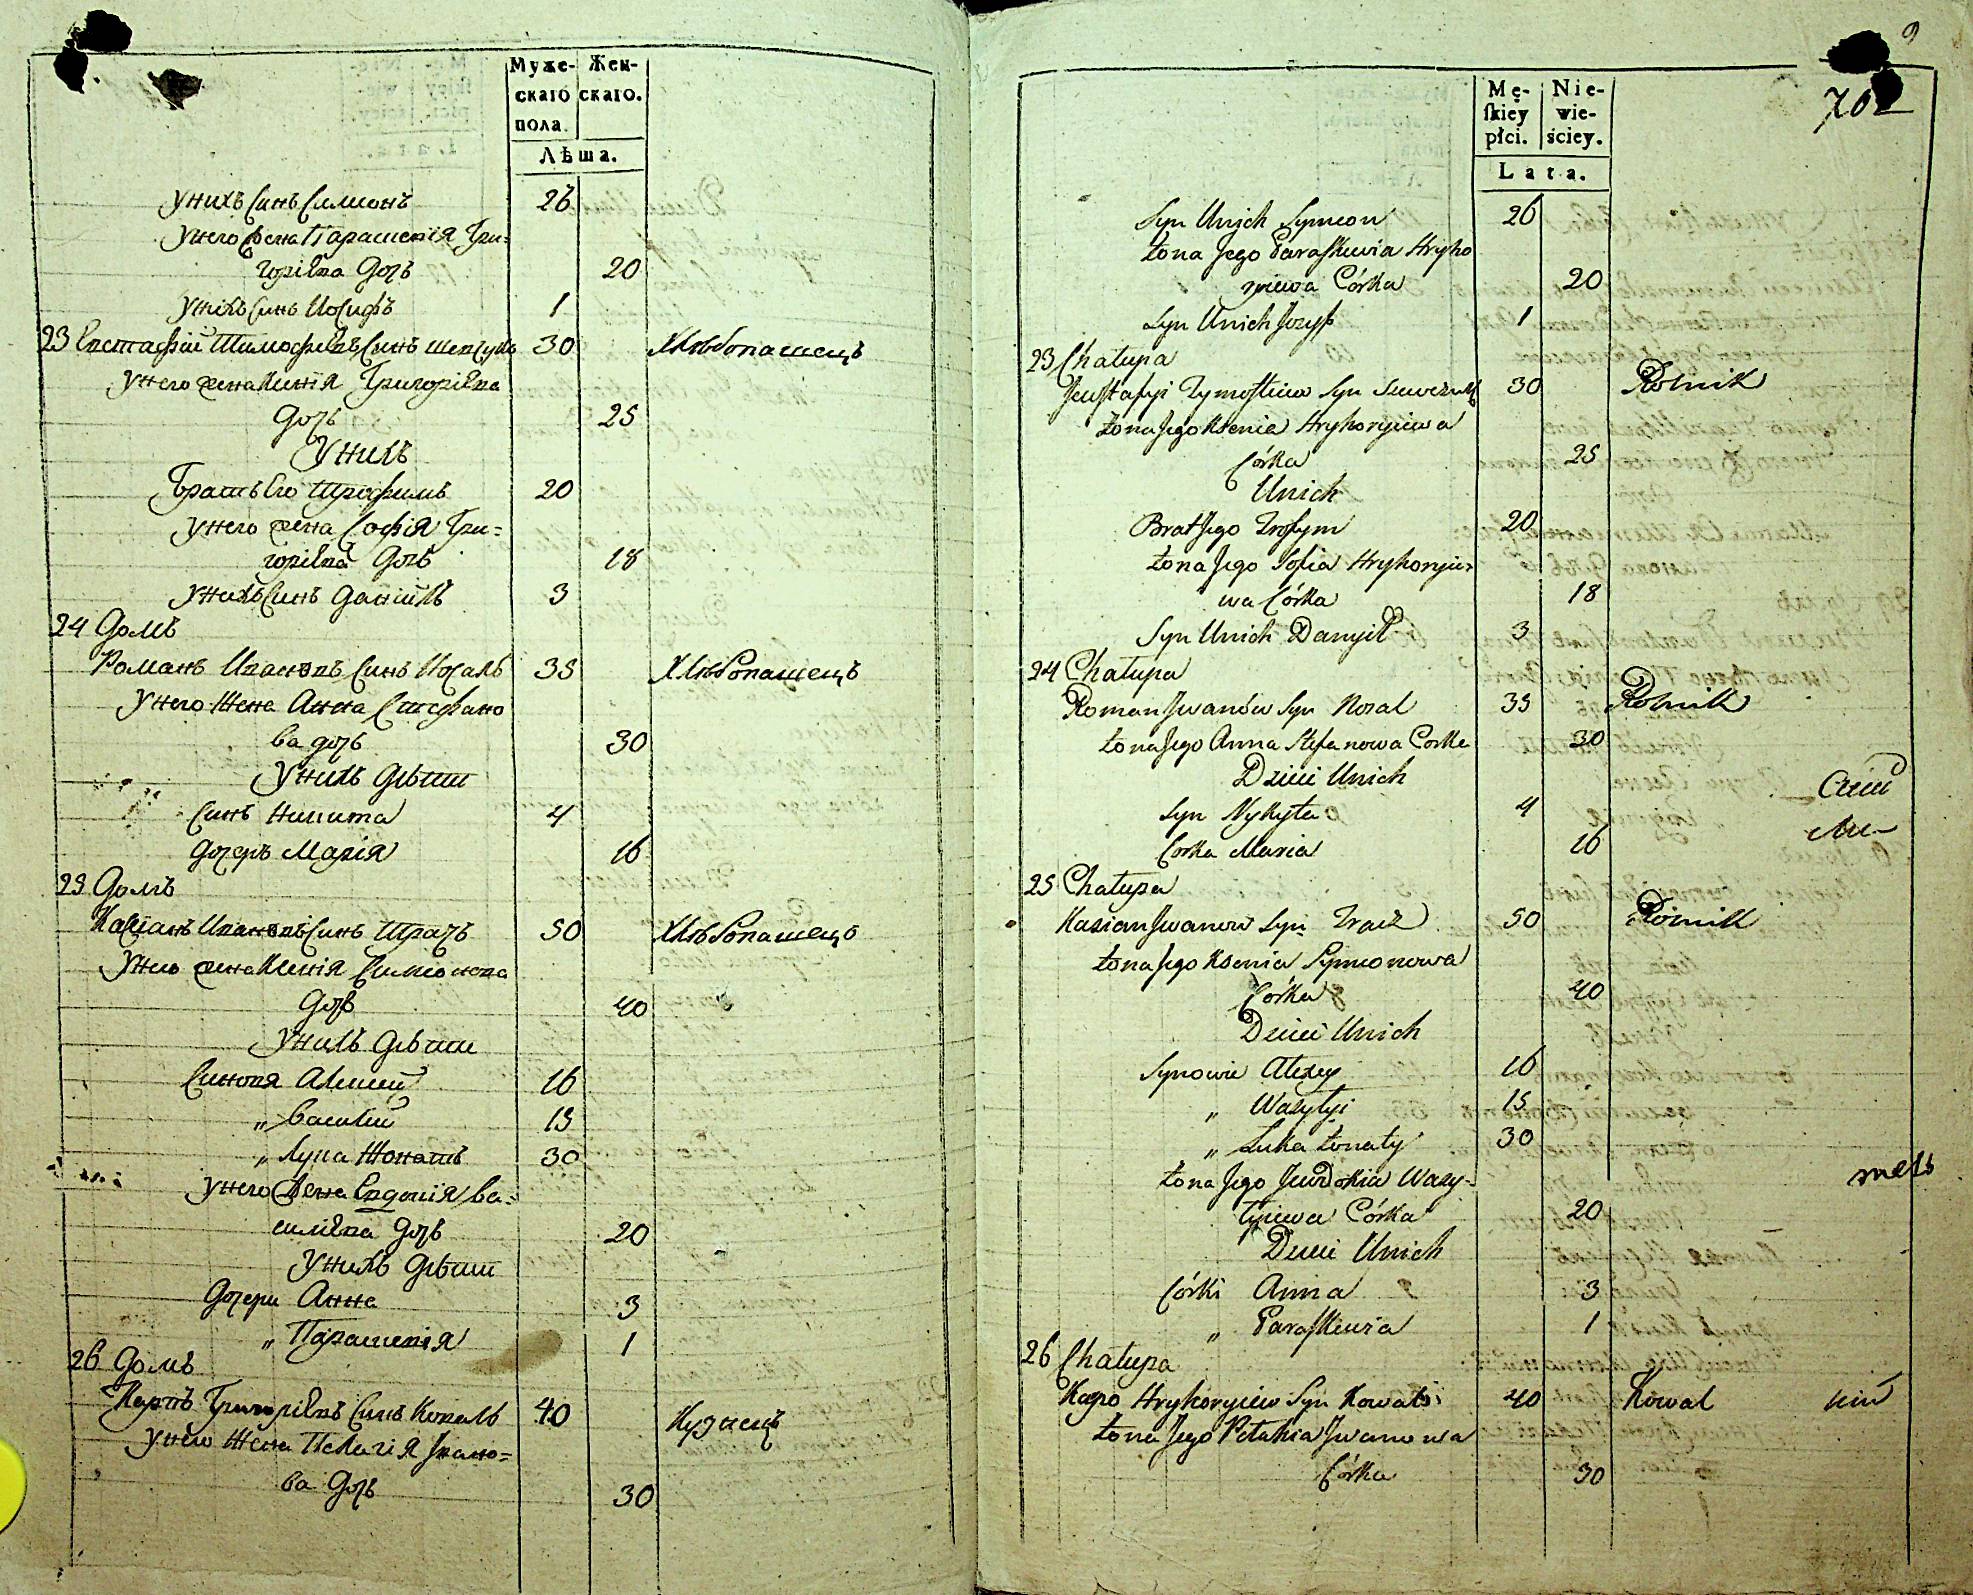 Муже-
скаго
пола.
Жен-
скаго.
Лѣта.
у нихъ Синъ Симионъ 26
у него Жена Параскевія Гри-
горіева Дочь 20
у нихъ Синъ Иосифъ 1
23 Евстафій Тимофѣевъ Синъ Шевчукъ 30 Хлѣбопашецъ
у него жена Ксенія Григоріева
Дочь 25
У нихъ
Братъ Его Трофимъ 20
у него жена Софія Гри-
горіева Дочь 18
у нихъ Синъ Даніилъ 3
24 Домъ
Романъ Ивановъ Синъ Носаль 35 Хлѣбопашецъ
у него Жена Анна Стефано
ва дочь 30
У нихъ Дѣти
Синъ Никита 4
Дочерь Марія 16
25 Домъ
Касіанъ Ивановъ Синъ Трачъ 50 Хлѣбопашецъ
у него жена Ксенія Симионова
Дочь 40
У нихъ Дѣти
Синовя Алексѣй 16
„ Василій 15
„ Лука Жонатъ 30
у него Жена Евдокія Ва-
силіева Дочь 20
У нихъ Дѣти
Дочери Анна 3
„ Параскевія 1
26 Домъ
Карпъ Григоріевъ Синъ Коваль 40 Кузнецъ
у него Жена Пелагія Ивано-
ва Дочь 30
9
702
Mę-
skiey
płci.
Nie-
wie-
ściey.
Lata.
Syn Unich Symeon 26
Żona Jego Paraskiewia Hryho
ryiewa Córka 20
Syn Unich Jozyf 1
23 Chałupa
Jewstafyi Tymofieiew Syn Szewczuk 30 Rolnik
Żona Jego Ksenia Hryhoryiewa
Córka 25
Unich
Brat Jego Trofym 20
Żona Jego Sofia Hryhoryie-
wa Córka 18
Syn Unich Danyił 3
24 Chałupa
Roman Jwanów Syn Nosal 35 Rolnik
Żona Jego Anna Stefanowa Corka 30
Dzieci Unich
Syn Nykyta 4
Corka Maria 16
25 Chałupa
Kasian Jwanow Syn Tracz 50 Rolnik
Żona Jego Ksenia Symeonowa
Córka 40
Dzieci Unich
Synowie Alexey 16
„ Wasylyi 15
„ Luka Żonaty 30
Żona Jego Jewdokia Wasy-
lyiewa Córka 20
Dzieci Unich
Córki Anna 3
„ Paraskiewia 1
26 Chałupa
Karpo Hryhoryiew Syn Kowal 40 Kowal
Żona Jego Pelahia Jwanowa
Córka 30